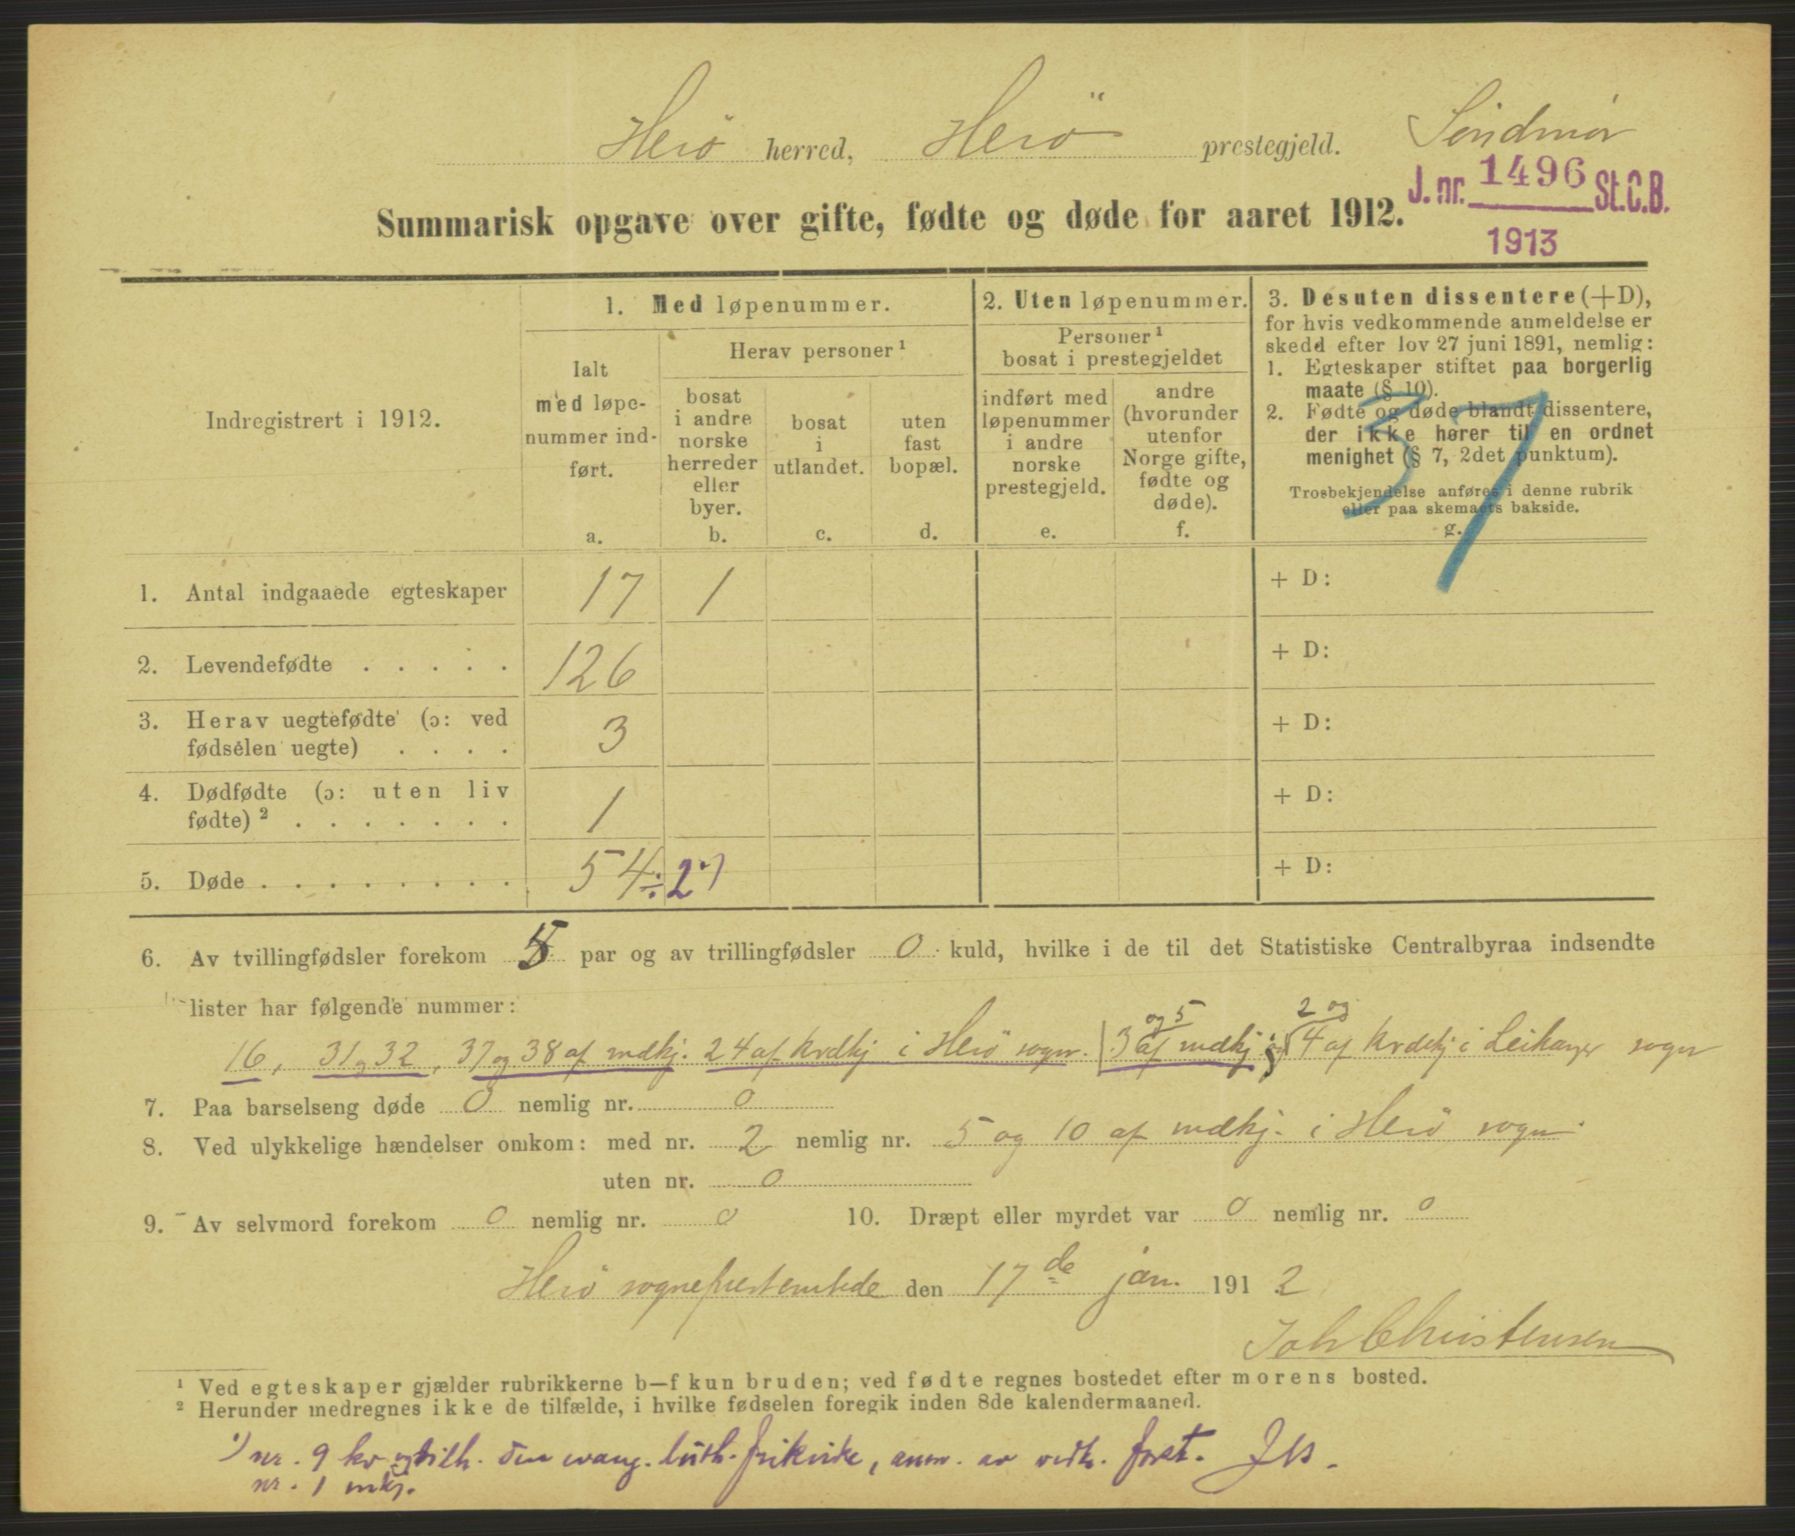 Herö herred, Herö prestegjeld. Söndmör
J. nr. 1496 St.C.B.
1913
Summarisk opgave over gifte, fødte og døde for aaret 1912.
Indregistrert i 1912.
1. Med løpenummer.
Ialt
med løpe-
nummer ind-
ført.
a.
Herav personer ¹
bosat
i andre
norske
herreder
eller
byer.
b.
bosat
i
utlandet.
c.
uten
fast
bopæl.
d.
2. Uten løpenummer.
Personer ¹
bosat i prestegjeldet
indført med
løpenummer
i andre
norske
prestegjeld.
e.
andre
(hvorunder
utenfor
Norge gifte,
fødte og
døde).
f.
3. Desuten dissentere (+D),
for hvis vedkommende anmeldelse er
skedd efter lov 27 juni 1891, nemlig:
1. Egteskaper stiftet paa borgerlig
maate (§ 10).
2. Fødte og døde blandt dissentere,
der ikke hører til en ordnet
menighet (§ 7, 2det punktum).
Trosbekjendelse anføres i denne rubrik
eller paa skemaets bakside.
g.
37
1. Antal indgaaede egteskaper 17 1 + D:
2. Levendefødte . . . . . 126 + D:
3. Herav uegtefødte (ɔ: ved
fødselen uegte) . . . . 3 + D:
4. Dødfødte (ɔ: uten liv
fødte) ² . . . . . . . 1 + D:
5. Døde . . . . . . . . . 54 ÷ 2 ¹) + D:
6. Av tvillingfødsler forekom 5 par og av trillingfødsler 0 kuld, hvilke i de til det Statistiske Centralbyraa indsendte
lister har følgende nummer:
og 5 2 og
16, 31 og 32, 37 og 38 af mdkj. 24 af kvdkj i Herö sogn. 3 af mdkj 4 af kvdkj i Leikanger sogn
7. Paa barselseng døde 0 nemlig nr. 0
8. Ved ulykkelige hændelser omkom: med nr. 2 nemlig nr. 5 og 10 af mdkj. i Herö sogn.
uten nr. 0
9. Av selvmord forekom 0 nemlig nr. 0 10. Dræpt eller myrdet var 0 nemlig nr. 0
Herö sogneprestembede den 17de jan. 1912
Joh Christensen
¹ Ved egteskaper gjælder rubrikkerne b—f kun bruden; ved fødte regnes bostedet efter morens bosted.
² Herunder medregnes ikke de tilfælde, i hvilke fødselen foregik inden 8de kalendermaaned.
¹) nr. 9 kv og tilh. den evang. luth. frikirke, anm. av vedk. forst.
nr. 1 mkj.